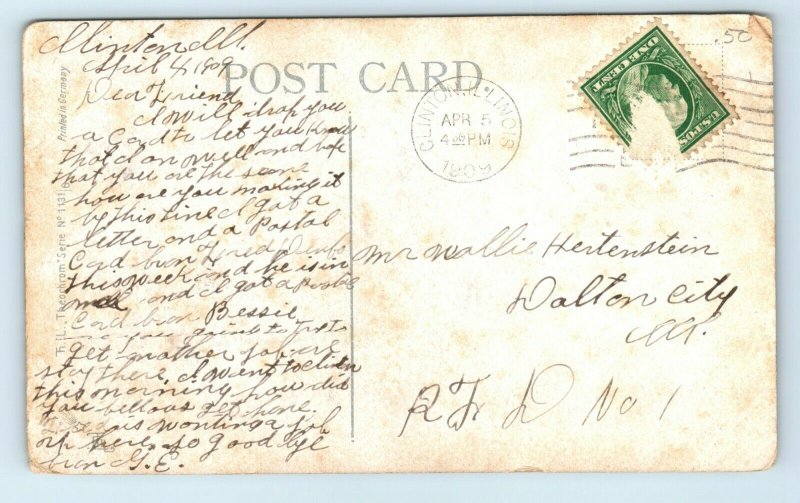 Clinton Ill.
April 4, 1909
Dear Friend
I will drop you
a Card to let you know
that I am well and hope
that you are the same
how are you making it
by this time I got a
letter and a Postal
Card from Fred
this week and he is in
and I got a Postal
Card from Bessie
are you going to try to
get another job or
stay there. I went to
this morning how did
you fellows get home.
is wanting a job
up here. so good bye
from G.E.
POST CARD
Printed in Germany
T. L., Theochrom" Serie Nº 1131
CLINTON, ILLINOIS
APR 5
4 PM
1909
ONE CENT
U.S. POS
.50
Mr Wallie Hertenstein
Dalton City
Ill.
R F D No 1